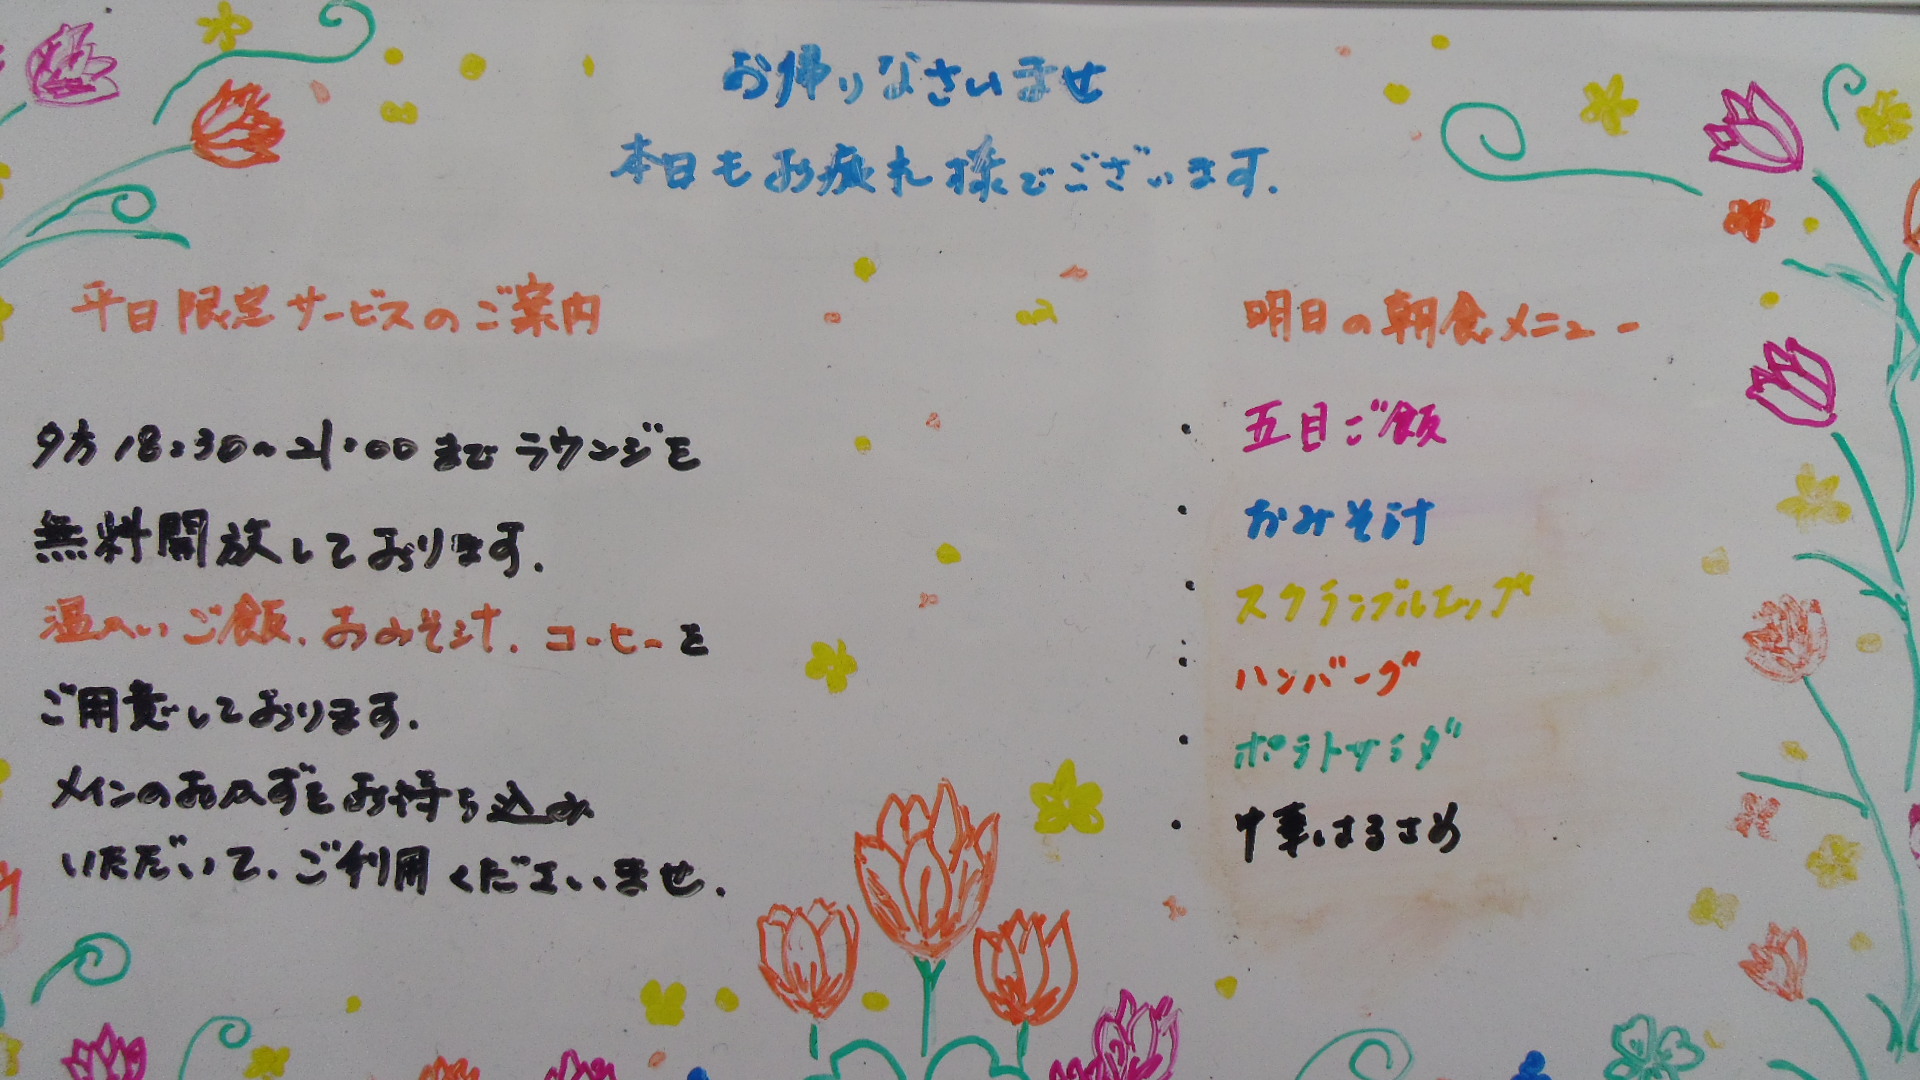 お帰りなさいませ
本日もお疲れ様でございます.
平日限定サービスのご案内
夕方18:30~21:00までラウンジを
無料開放しております.
温かいご飯.おみそ汁.コーヒーを
ご用意しております.
メインのおかずをお持ち込み
いただいて.ご利用くださいませ.
明日の朝食メニュー
・五目ご飯
・おみそ汁
・スクランブルエッグ
・ハンバーグ
・ポテトサラダ
・中華はるさめ